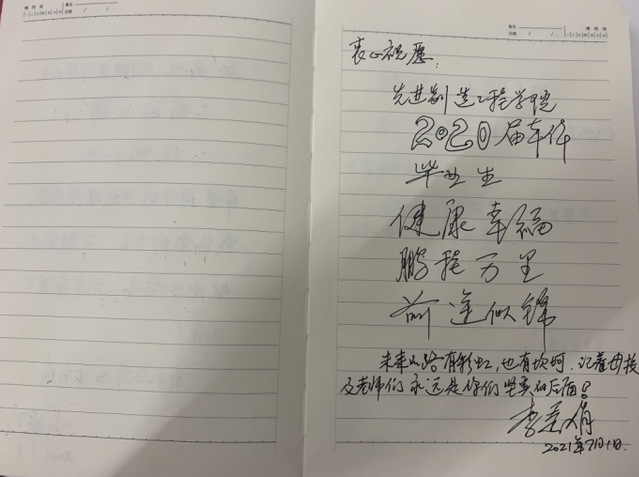 衷心祝愿:
先进制造工程学院
2020届车体
毕业生
健康幸福
鹏程万里
前途似锦
未来之路有彩虹,也有坎坷.记着母校
及老师们永远是你们坚实的后盾!
李 娟
2021年7月1日.